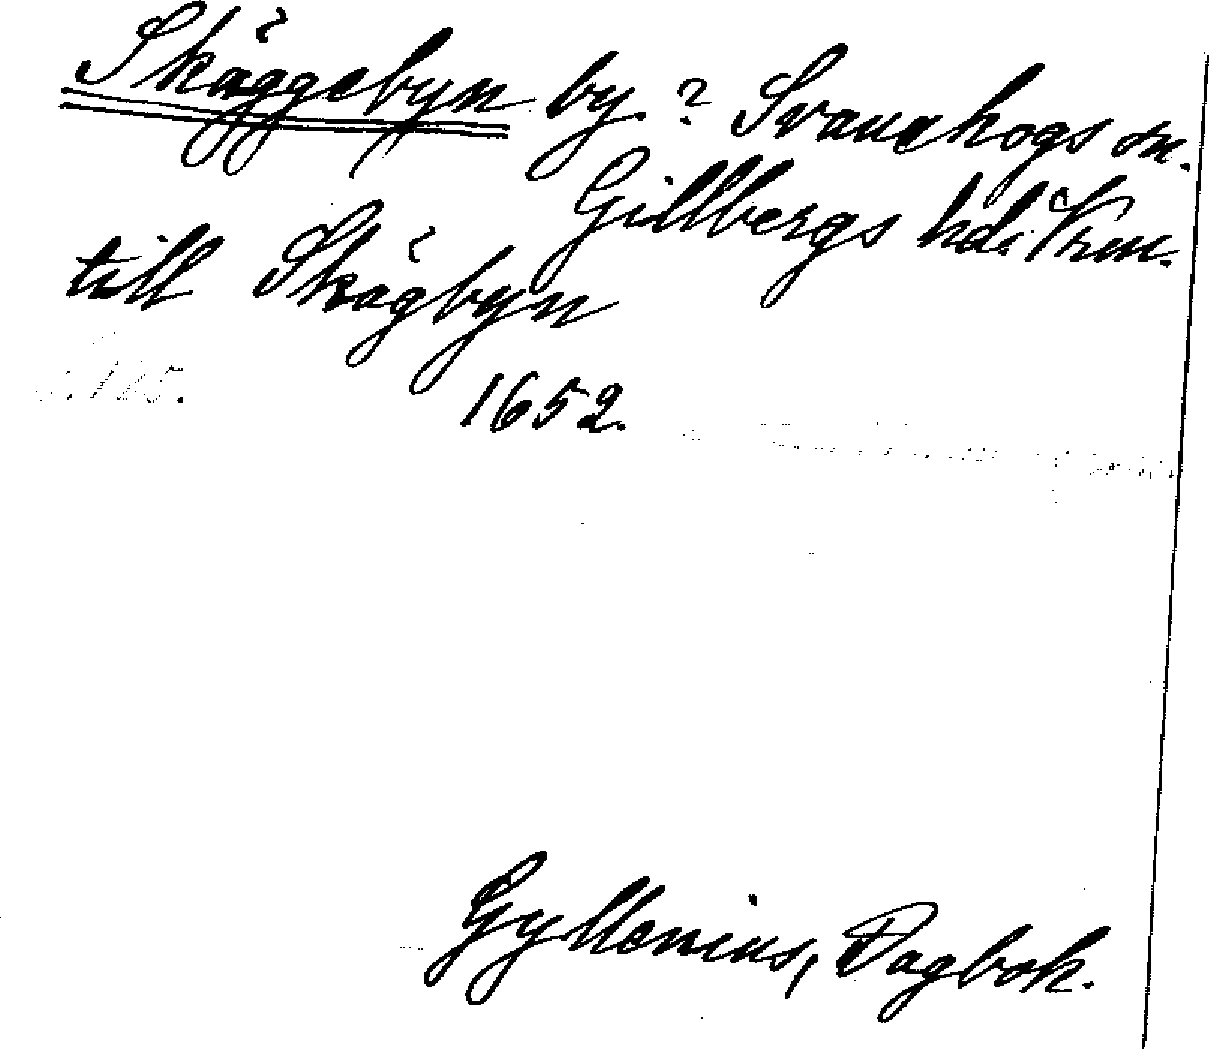 Skäggebyn by? Svanskogs sn.
Gillbergs hd. Vrm.
till Skägbyn
1652.
Gyllenius, Dagbok.